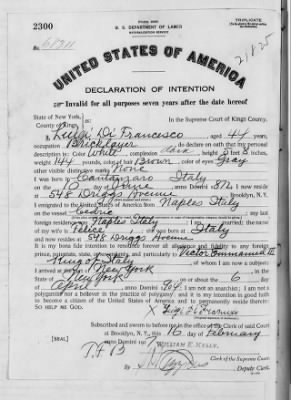 2300
Form 2203
U. S. DEPARTMENT OF LABOR
NATURALIZATION SERVICE
TRIPLICATE
No.
UNITED STATES OF AMERICA
DECLARATION OF INTENTION
Invalid for all purposes seven years after the date hereof
State of New York,
County of Kings, ss: In the Supreme Court of Kings County.
I, Luigi Di Francesco, aged 44 years,
occupation Bricklayer, do declare on oath that my personal
description is: Color White, complexion dark, height 5 feet inches,
weight 144 pounds, color of hair Brown, color of eyes Gray
other visible distinctive marks None
I was born in Catanzaro Italy
on the day of June, anno Domini 1 872; I now reside
at 548 Driggs Avenue Brooklyn, N. Y.
I emigrated to the United States of America from Naples Italy
on the vessel Cedric; my last
foreign residence was Naples Italy; I am married; the name
of my wife is Felice; she was born at Italy
and now resides at 548 Driggs Avenue
It is my bona fide intention to renounce forever all allegiance and fidelity to any foreign
prince, potentate, state, or sovereignty, and particularly to Victor Emmanuel III
King of Italy, of whom I am now a subject;
I arrived at the port of New York, in the
State of New York, on or about the 6 day
of April, anno Domini 1 904; I am not an anarchist; I am not a
polygamist nor a believer in the practice of polygamy; and it is my intention in good faith
to become a citizen of the United States of America and to permanently reside therein:
SO HELP ME GOD.
Subscribed and sworn to before me in the office of the Clerk of said Court
at Brooklyn, N. Y., this 16 day of February
anno Domini 191
[SEAL]
WILLIAM E. KELLY,
Clerk of the Supreme Court.
By Deputy Clerk.